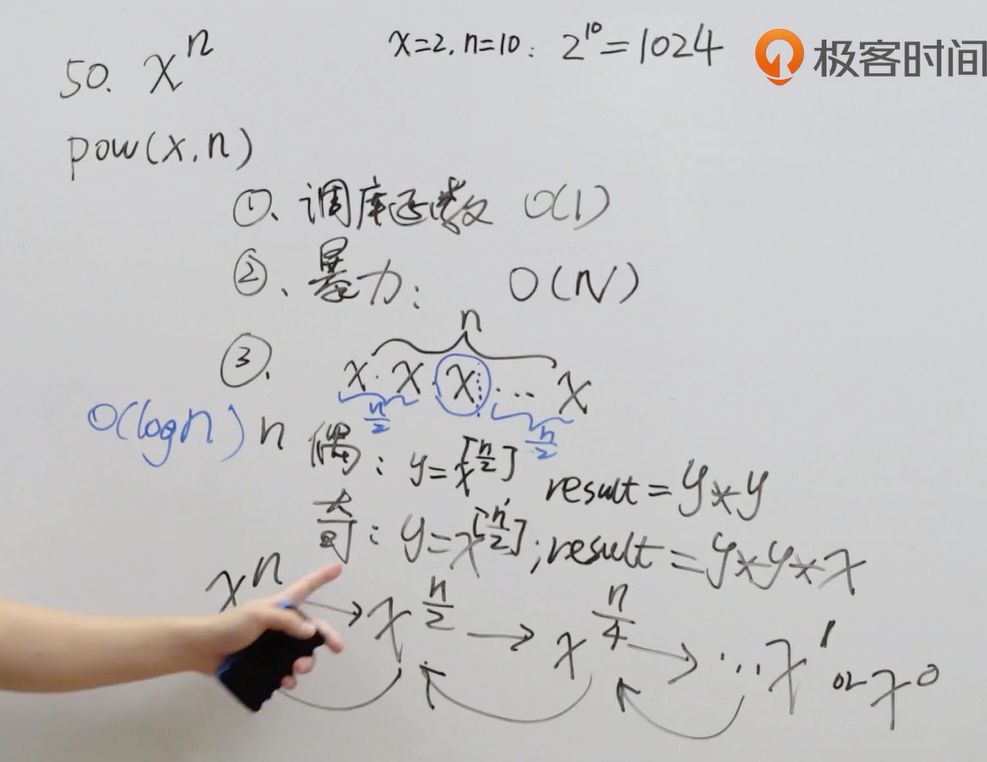 x=2, n=10: 2^10=1024
极客时间
50. x^n
pow(x,n)
①、调库函数 O(1)
②、暴力: O(N)
n
③、 x · x · x · ... x
n/2 n/2
O(logn) n 偶: y=x^[n/2] result=y*y
奇: y=x^[n/2]; result=y*y*x
x^n → x^(n/2) → x^(n/4) → ...x^1 or x^0